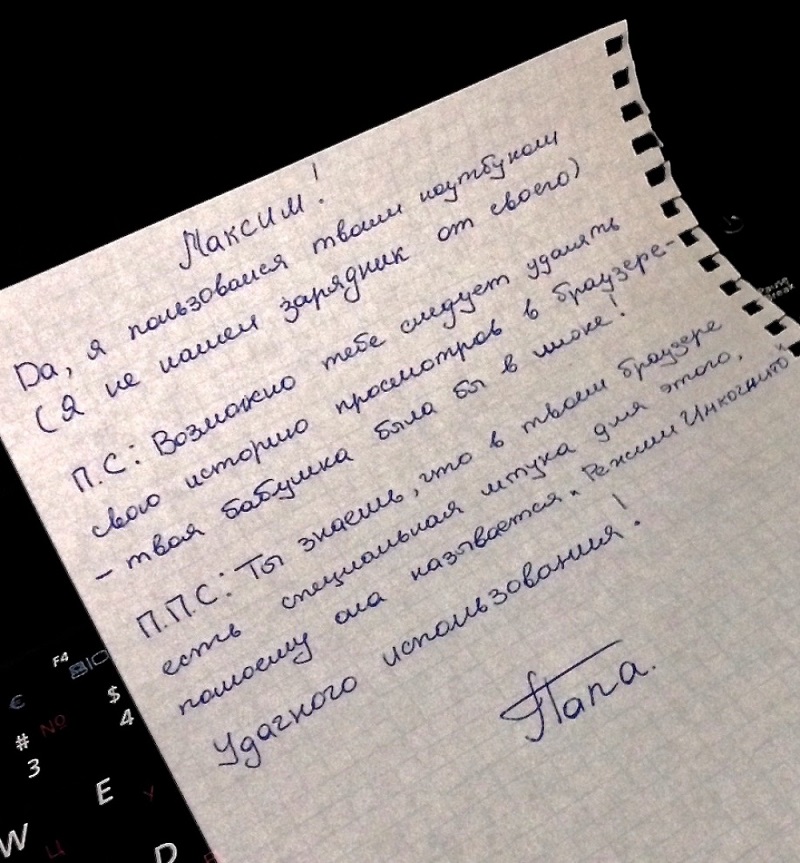 Максим!
Да, я пользовался твоим ноутбуком
(Я не нашел зарядник от своего)
П.С: Возможно тебе следует удалять
свою историю просмотров в браузере-
- твоя бабушка была бы в шоке!
П.П.С: Ты знаешь, что в твоем браузере
есть специальная штука для этого,
помоему она называется "Режим Инкогнито"
Удачного использования!
Папа.
Pause
Break
F4
€
$
4
#
№
3
E
У
W
Ц
D